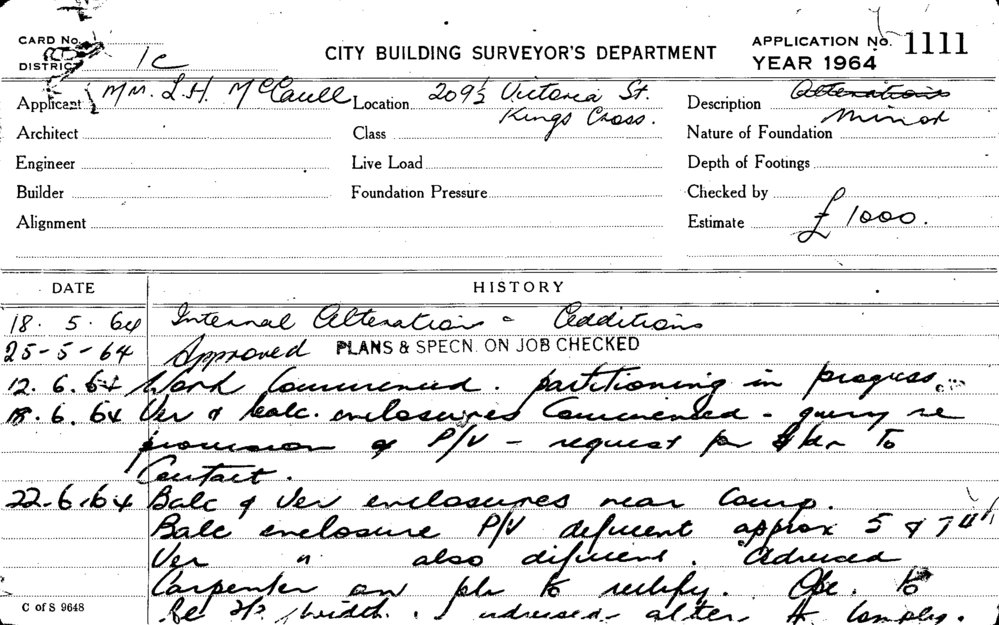 CARD No.
DISTRICT 1C
CITY BUILDING SURVEYOR'S DEPARTMENT
APPLICATION No. 1111
YEAR 1964
Applicant L.H. McCaull
Location 209½ Victoria St.
Kings Cross.
Description Alterations
Minor
Architect
Class
Nature of Foundation
Engineer
Live Load
Depth of Footings
Builder
Foundation Pressure
Checked by
Alignment
Estimate £1000.
DATE HISTORY
18. 5. 64 Internal Alterations & Additions
25-5-64 Approved PLANS & SPECN. ON JOB CHECKED
12. 6. 64 Work Commenced. partitioning in progress.
18. 6. 64 Ver & balc. enclosures Commenced - query re
provision of P/V - request for bldr to
Contact.
22-6-64 Balc & Ver enclosures near Comp.
Balc enclosure P/V deficient approx 5 & 7
Ver " also dificient. Advised
Carpenter on job to rectify.
be width. advised alter to comply.
C of S 9648